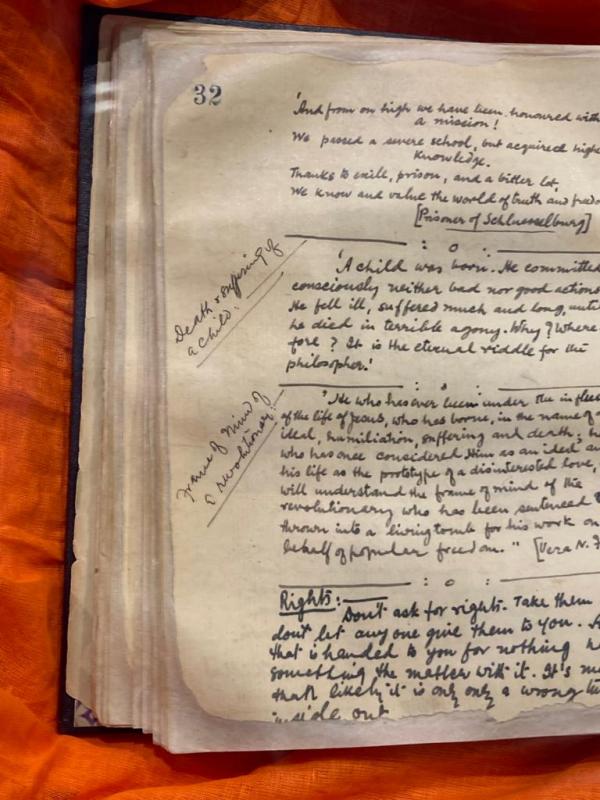 32
'And from on high we have been honoured with
a mission!
We passed a severe school, but acquired highe
knowledge.
Thanks to exile, prison, and a bitter lot,
We know and value the world of truth and freedo
[Prisoner of Schluesselburg]
Death & suffering of
a child:
'A child was born. He committed
consciously neither bad nor good actions
He fell ill, suffered much and long, unti
he died in terrible agony. Why? Where
fore? It is the eternal riddle for the
philosopher.'
Frame of Mind of
a revolutionary:
'He who has ever been under the influen
of the life of Jesus, who has borne, in the name of a
ideal, humiliation, suffering and death; h
who has once considered Him as an ideal an
his life as the prototype of a disinterested love,
will understand the frame of mind of the
revolutionary who has been sentenced
thrown into a living tomb for his work on
behalf of popular freedom." [Vera N. F
Rights:
Don't ask for rights. Take them
dont let any one give them to you. A
that is handed to you for nothing h
something the matter with it. It's m
than likely it is only only a wrong tu
inside out